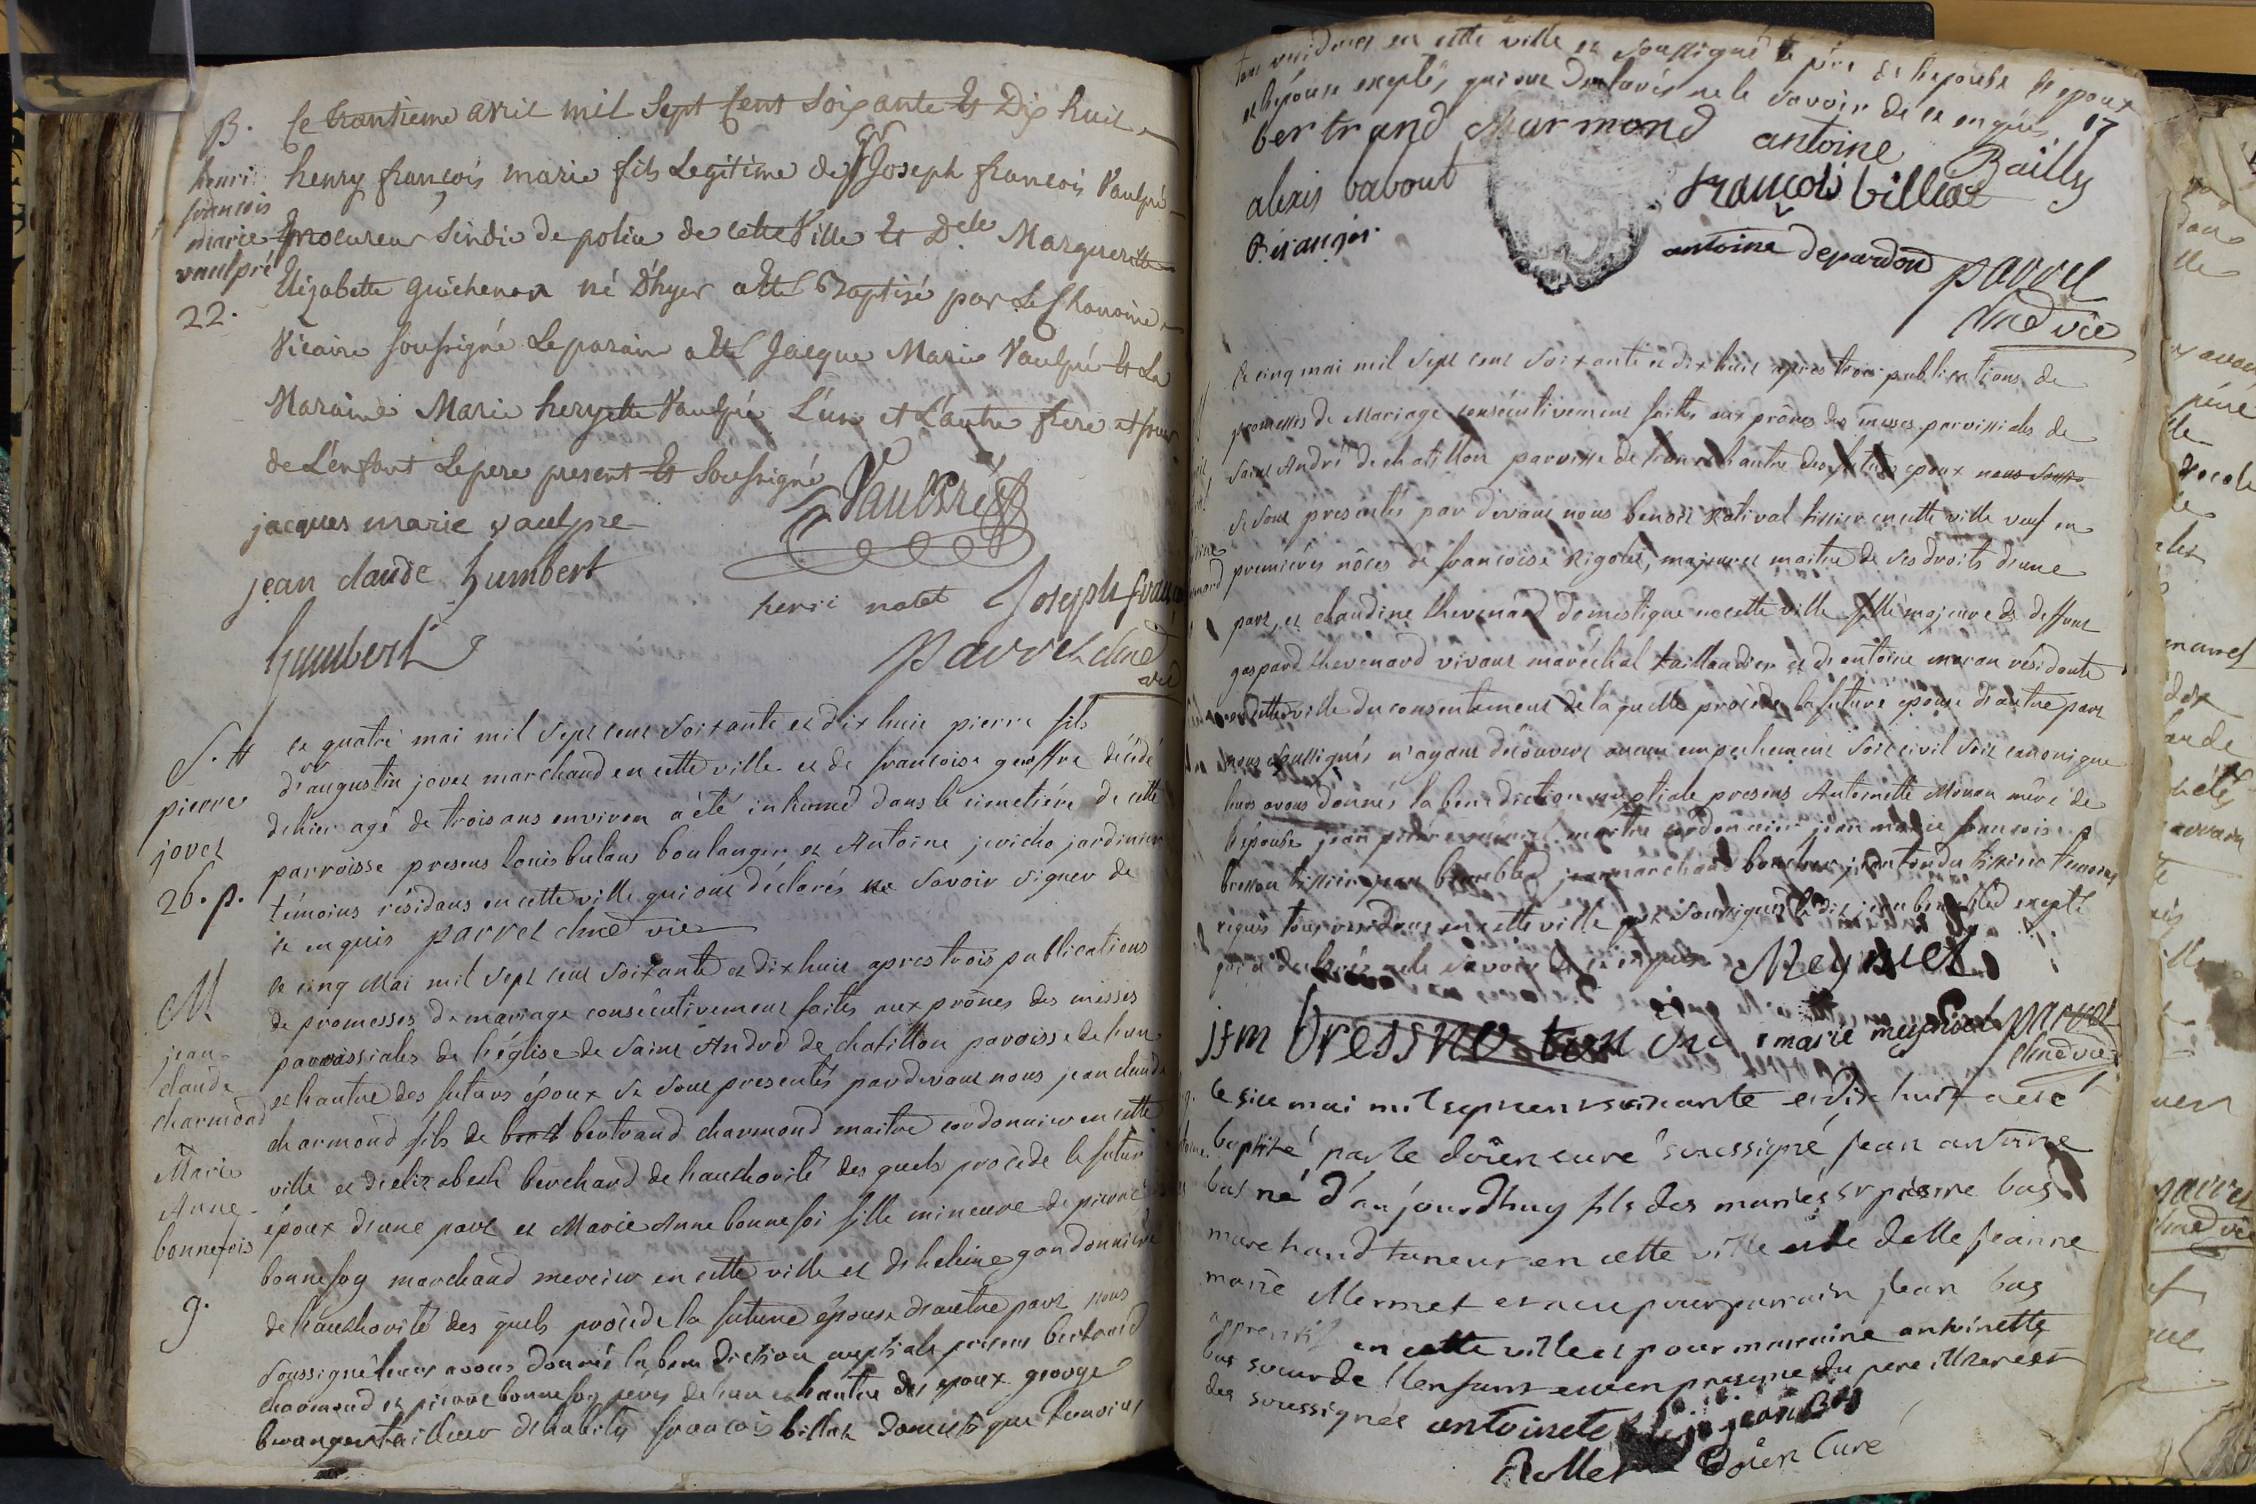 B.
henri
francois
marie
vaulpré
22.
Ce trantieme avril mil Sept Cent Soixante Et Dix huit
henry françois marie fils Legitime de Sr Joseph francois Vaulpré
procureur Sindic de police de cette Ville Et Delle Marguerite
Elizabette guichenon né D'hyer a été Baptisé par Le Chanoine
Vicaire soussigné Le parain a été Jacque Marie Vaulpré Et La
Maraine Marie heryette Vaulpré L'un et L'autre frere et soeur
de L'enfant Le pere present Et Soussigné
Vaulpré
jacques marie vaulpre
jean claude humbert
henri natet Joseph
humbert
parret chne
vic
S. tt
pierre
jovet
26. p.
ce quatre mai mil sept cent soixante et dix huit pierre fils
d'augustin jovet marchand en cette ville et de francoise décédé
d'hier agé de trois ans environ a été inhumé dans le cimetiére de cette
parroisse presens louis bulans boulanger et Antoine jericho jardinier
témoins résidans en cette ville qui ont déclarés ne savoir signer de
ce enquis parret chne vic
M
jean
claude
charmond
Marie
Anne
bonnefois
9.
ce cinq Mai mil sept cent soixante et dix huit apres trois publications
de promesses de mariage consécutivement faites aux prônes des messes
parroissiales de l'église de saint André de chatillon paroisse de l'un
et l'autre des futurs époux se sont presentés pardevant nous jean claude
charmond fils de bertrand charmond maitre cordonnier en cette
ville et d'elizabeth berchard de l'authorité des quels procède le futur
époux d'une part et Marie Anne bonnefoi fille mineure de pierre
bonnefoy marchand mercier en cette ville et d'heleine gondonniere
de l'authorité des quels procède la future épouse d'autre part nous
soussigné leurs avons donnés la benediction nuptiale presens bertrand
charmond et pierre bonnefoy peres de l'un et l'autre des epoux george
beranger tailleur d'habits françois billiat domestique
tous residans en cette ville et soussigné le père de l'epouse l'epoux
et l'épouse exceptés qui ont declarés ne le savoir de ce enquis
17
bertrand Charmond antoine Bailly
alexis babout françois billiat
Béranger
antoine depardon parret
chne vic
le cinq mai mil sept cent soixante et dix huit apres trois publications de
promesses de Mariage consécutivement faites aux prônes des messes parroissiales de
saint André de chatillon parroisse de l'un et l'autre des futurs epoux
se sont presentés par devant nous benoit en cette ville veuf en
premiéres nôces de francoise Rigolet, majeur et maitre de ses droits d'une
part, et claudine thevenard domestique en cette ville fille majeure de deffunt
gaspard thevenard vivant maréchal taillandier et d'antoine moran résidente
en cette ville du consentement de laquelle procède la future épouse d'autre part
nous soussignés n'ayant découvert aucun empechement soit civil soit canonique
leurs avons donnés la benediction nuptiale presens Antoinette Moran mére de
l'épouse jean pierre maitre cordonnier jean marie francois
bresson marchand boucher temoins
requis tous residans en cette ville et soussignés excepté
qui a declarés ne le savoir de ce enquis Meynier
jfm bresson marie parret
chne vic
le six mai mil sept cent soixante et dix huit a été
baptisé par le doïen curé soussigné jean antoine
bas né d'aujourdhuy fils des mariés sr pierre bas
marchand taneur en cette ville et de delle jeanne
marie Mermet et a eu pour parrain jean bas
apprentif en cette ville et pour marraine antoinette
bas soeur de l'enfant en presence du pere
des soussignés antoinete jean Bas
Rollet Doïen Curé